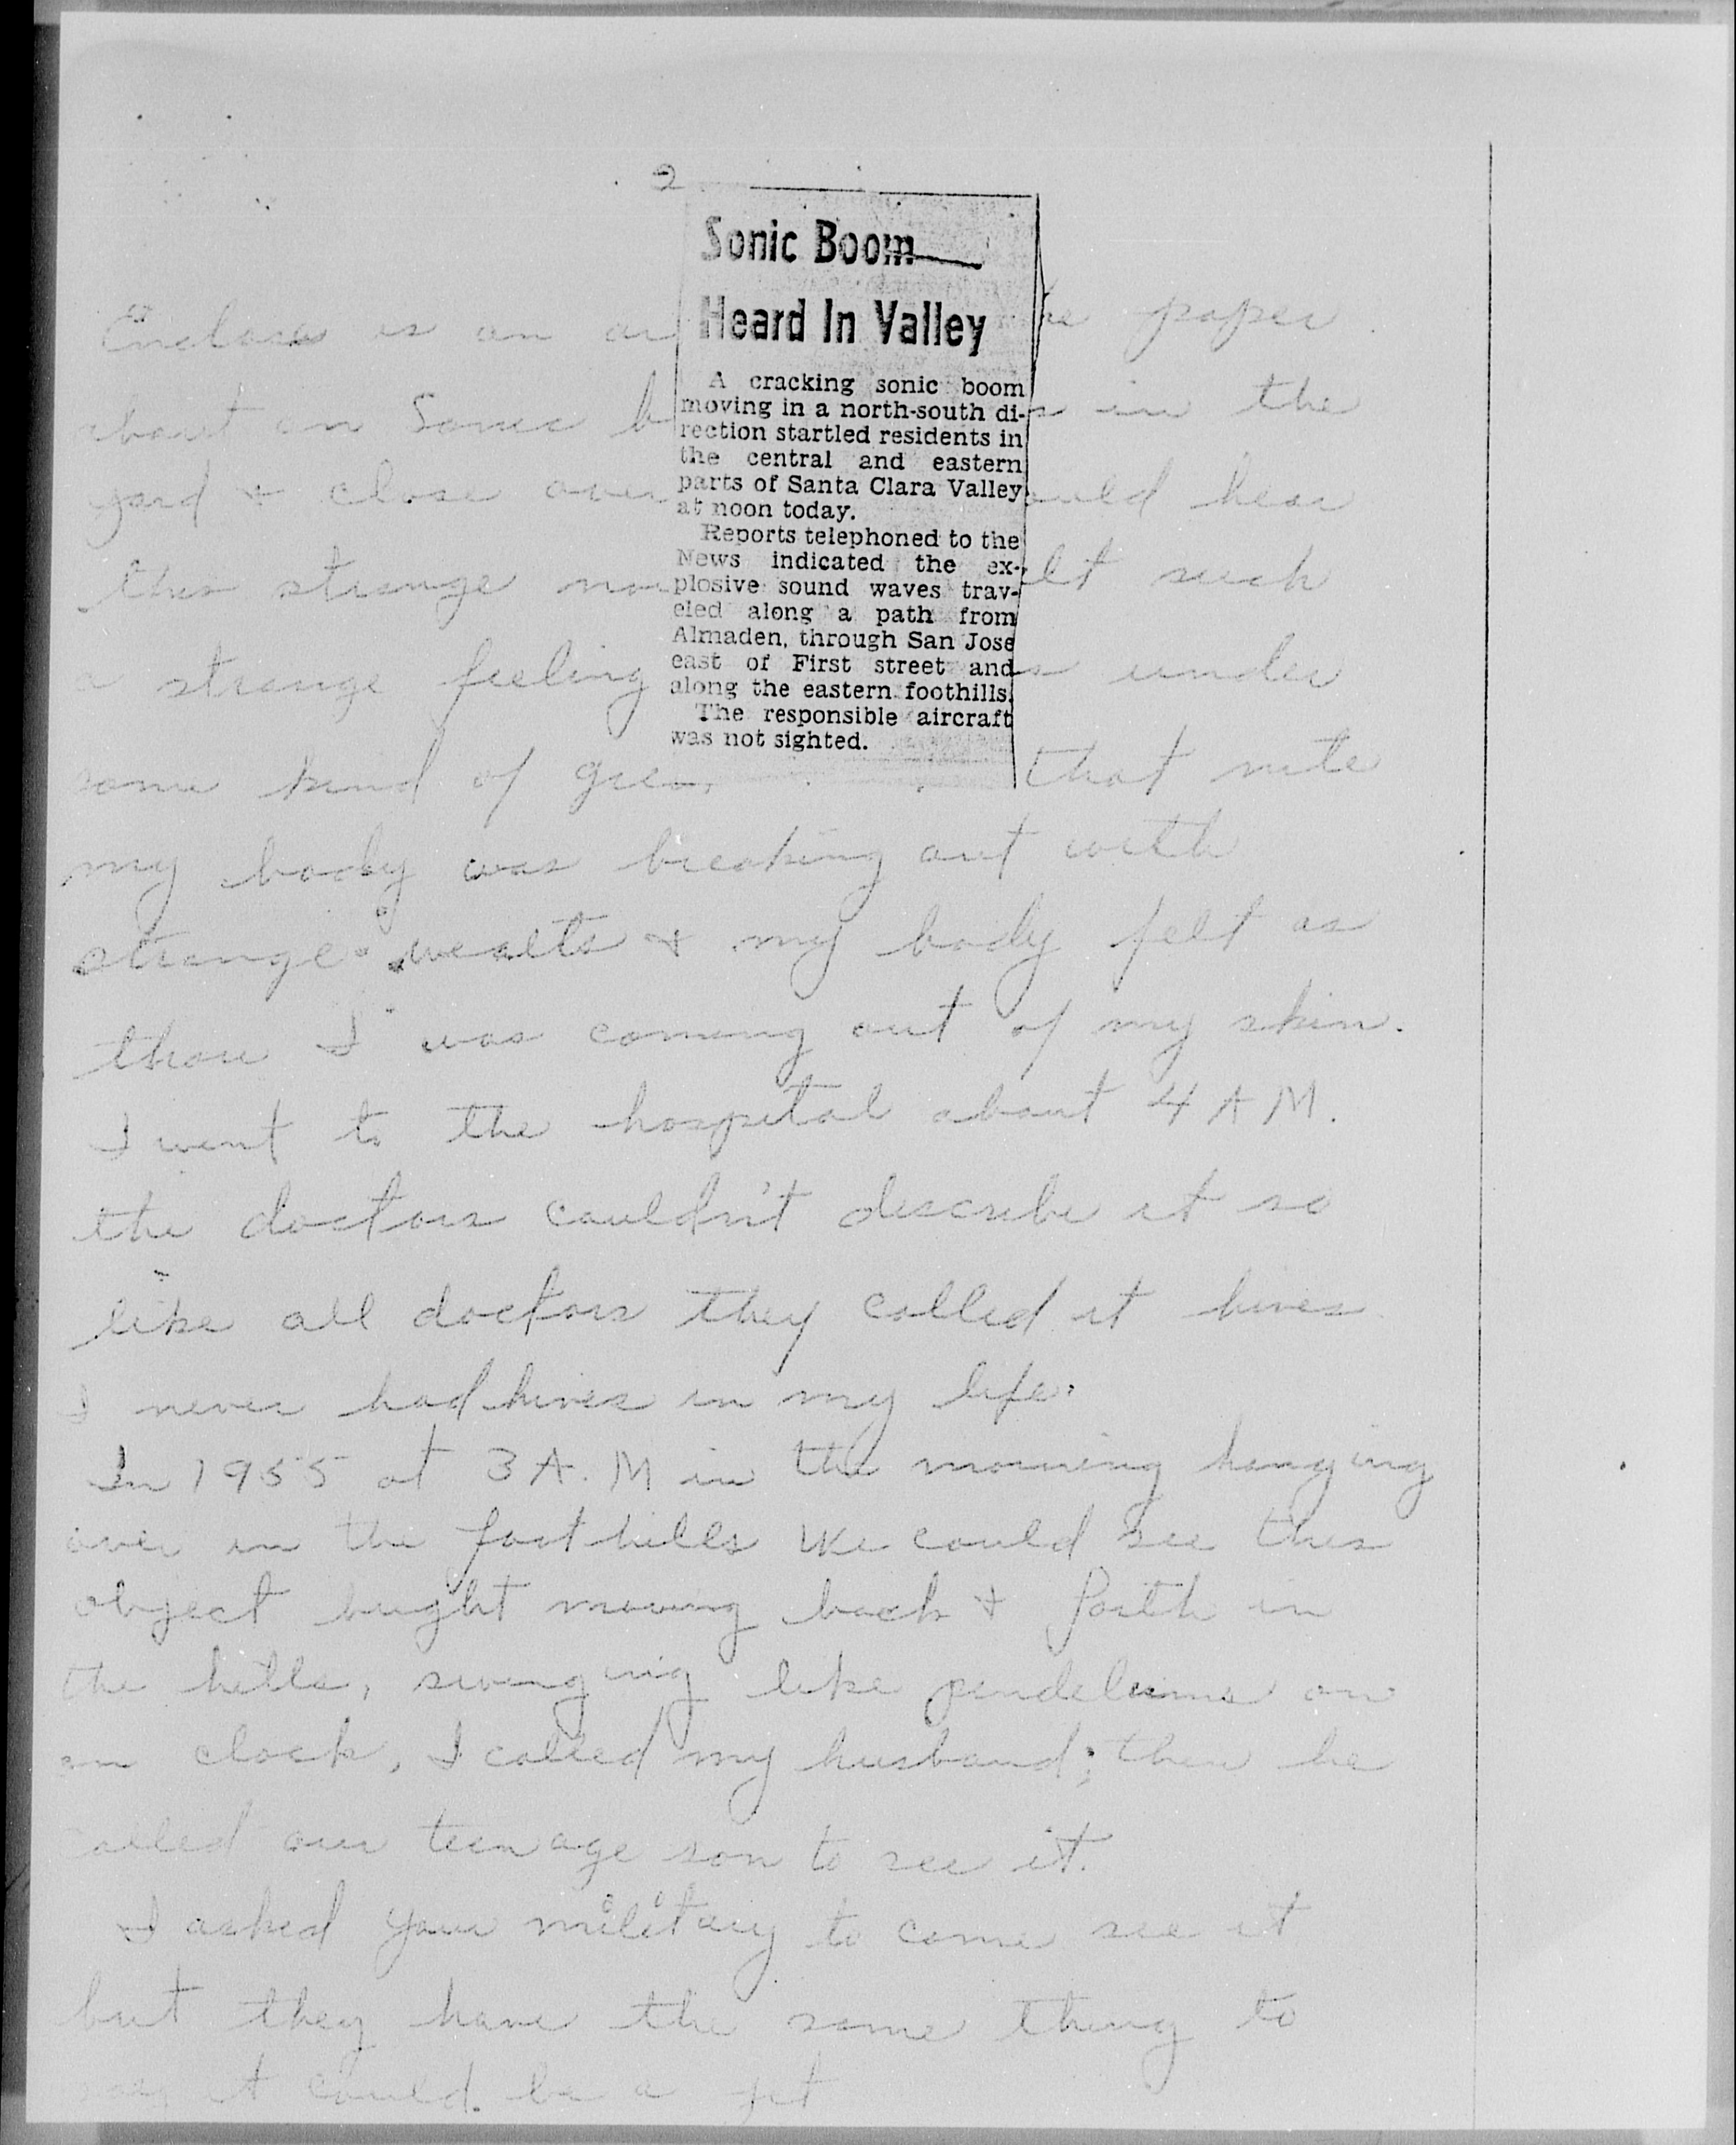 2
Sonic Boom
Heard In Valley
A cracking sonic boom
moving in a north-south di-
rection startled residents in
the central and eastern
parts of Santa Clara Valley
at noon today.
Reports telephoned to the
News indicated the ex-
plosive sound waves trav-
eled along a path from
Almaden, through San Jose
east of First street and
along the eastern foothills.
The responsible aircraft
was not sighted.
is an paper
about an Sonic in the
yard & close over hear
this strange such
a strange feeling under
some kind of that nite
my body was breaking out with
strange wealts & my body felt as
thou I was coming out of my skin.
I went to the hospital about 4 A M.
the doctors couldn't describe it so
like all doctors they called it hives
I never had hives in my life.
In 1955 at 3 A.M in the morning hanging
over in the foothills we could see this
object bright moving back & forth in
the hills, swinging like pendelums on
an clock, I called my husband; then he
called our teenage son to see it.
I asked your military to come see it
but they have the same thing to
say it could be a jet